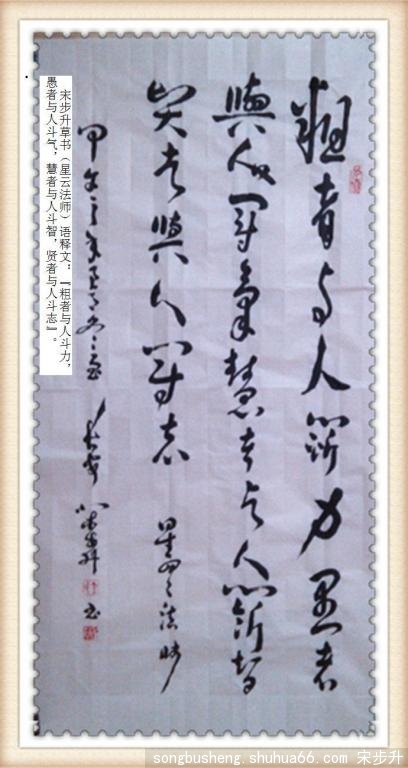 粗者与人鬥力愚者
與人鬥气慧者与人鬥智
贤者與人鬥志 星云法師
甲午之年
宋步升书
宋步升草书（星云法师）语释文：『粗者与人斗力，
愚者与人斗气，慧者与人斗智，贤者与人斗志』。
songbusheng.shuhua66.com 宋步升